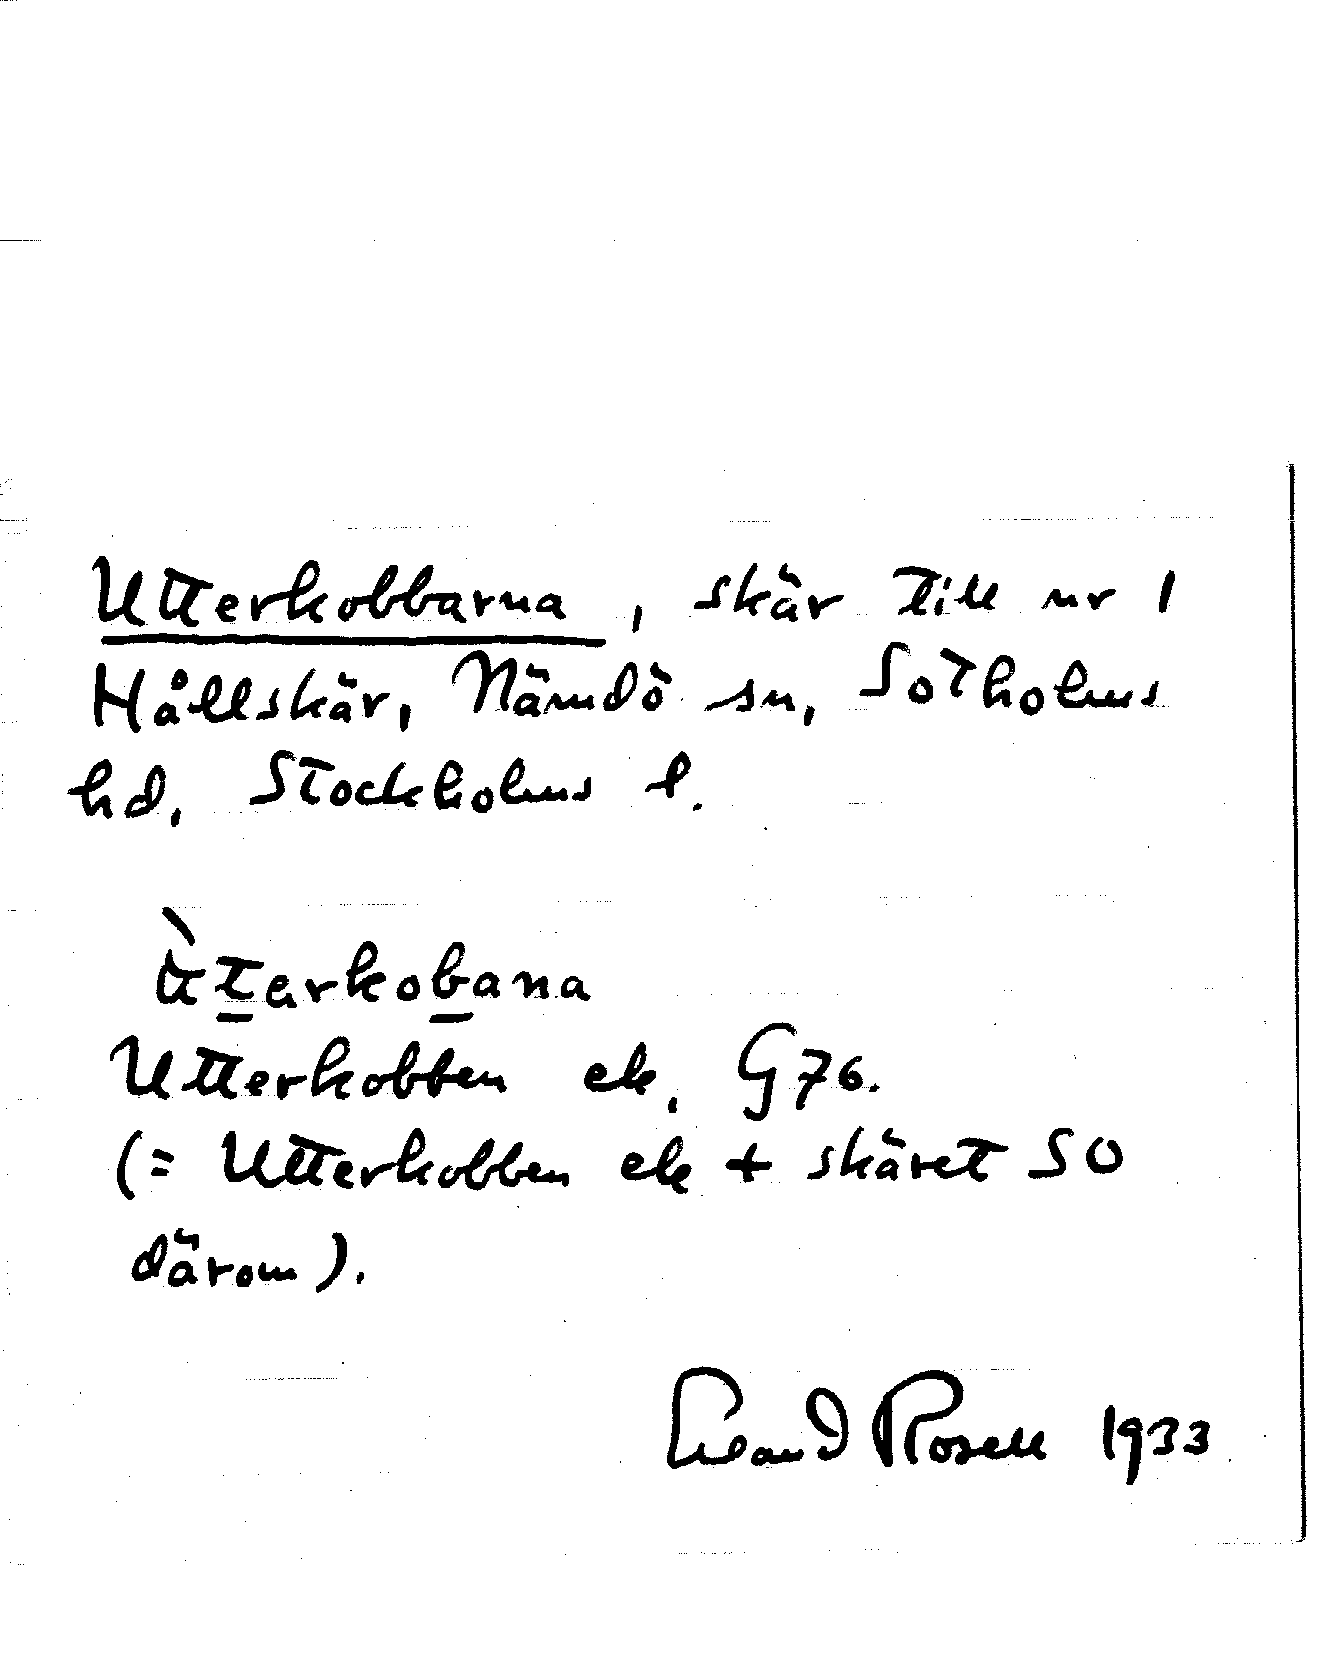 Utterkobbarna, skär till nr 1
Hållskär, Nämdö sn, Sotholms
hd, Stockholms l.
Ùtarkobana
Utterkobben ek, G76.
(= Utterkobben ek + skäret SO
därom).
Erland Rosell 1933